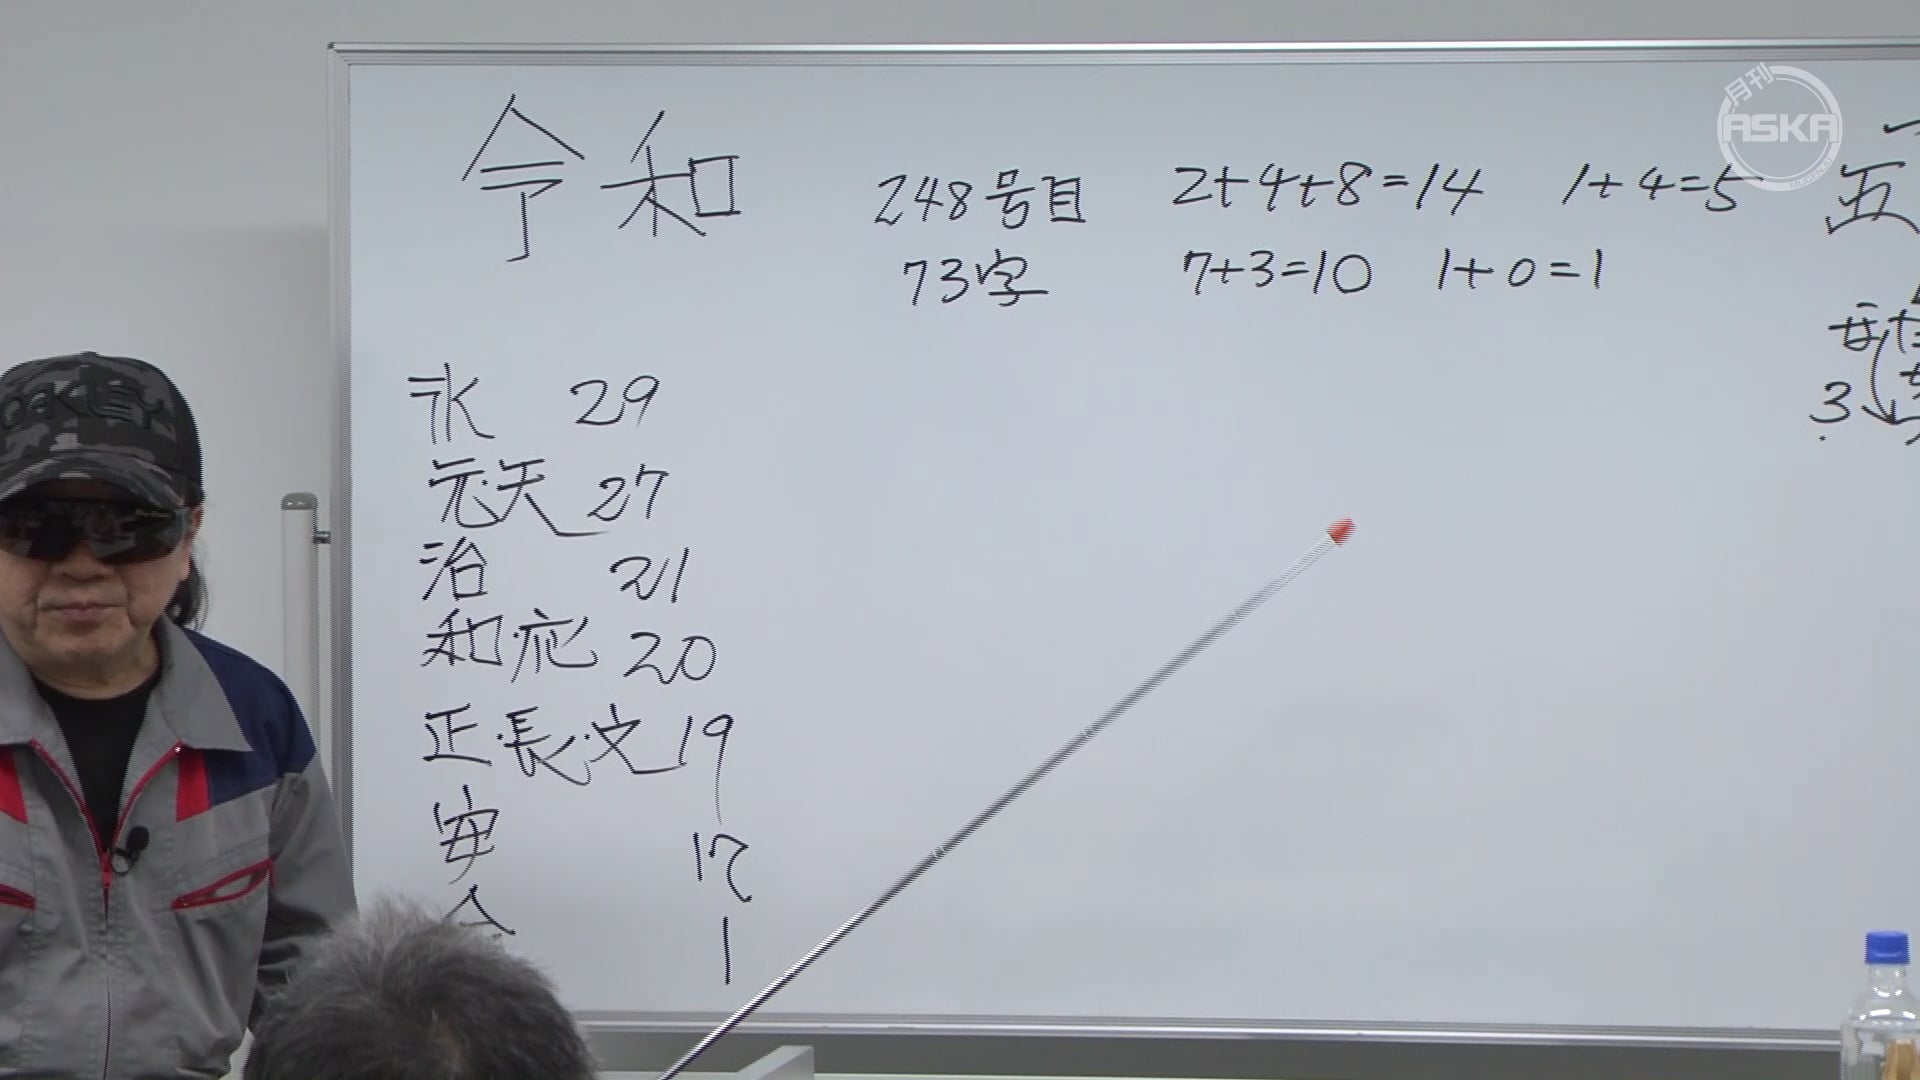 令和
248号目 2+4+8=14 1+4=5
73字 7+3=10 1+0=1
永 29
元・天 27
治 21
和・応 20
正・長・文 19
安 17
令 1
五
3
月刊
ASKA
OAKLEY